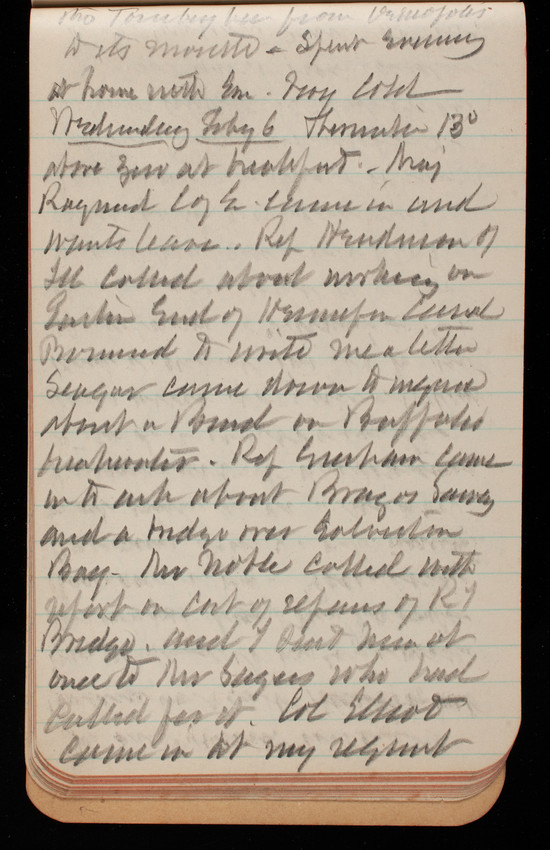 the Tombigbee from Demopolis
to its mouth - Spent Evening
at home with Em. Very Cold
Wednesday Feby 6 Thermometer 13°
above Zero at breakfast. - Maj
Raymond C of E. came in and
wants leave. Rep Henderson of
Ill called about working on
Eastern End of Hennepin Canal
Promised to write me a letter
Seager came down to inquire
about a Bond on Buffalo
breakwater. Rep Gresham came
in to ask about Brazos Survey
and a bridge over Galveston
Bay. Mr Noble called with
report on cost of repairs of R I
Bridge. and I sent him at
once to Mr who had
called for it. Col Elliot
came in at my request